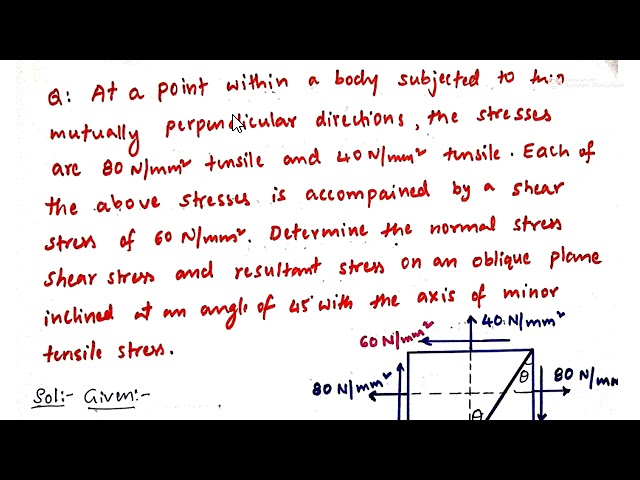 Q: At a point within a body subjected to two
mutually perpendicular directions, the stresses
are 80 N/mm² tensile and 40 N/mm² tensile. Each of
the above stresses is accompained by a shear
stress of 60 N/mm². Determine the normal stress
shear stress and resultant stress on an oblique plane
inclined at an angle of 45° with the axis of minor
tensile stress.
40 N/mm²
60 N/mm²
80 N/mm²
θ
80 N/mm
θ
Sol:- Given:-